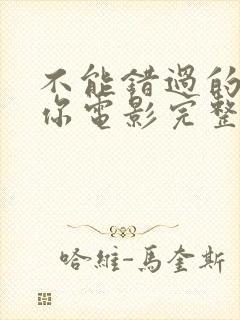 不能錯過的
你電影完整
哈維-馬奎斯